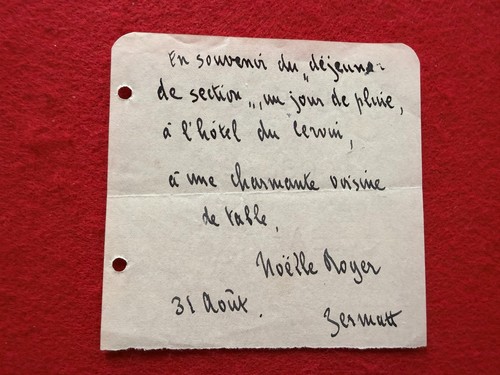 En souvenir du „déjeuner
de section„, un jour de pluie,
à l'hôtel du Cervin,
à une charmante voisine
de table,
Noëlle Roger
31 Août.
Zermatt